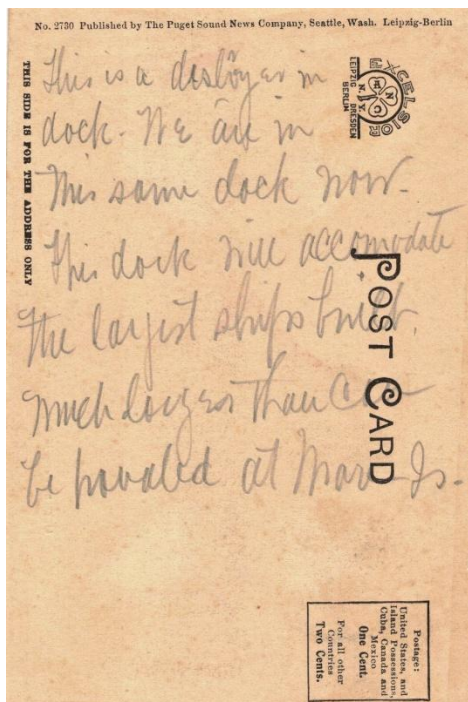 No. 2730 Published by The Puget Sound News Company, Seattle, Wash. Leipzig-Berlin
THIS SIDE IS FOR THE ADDRESS ONLY
EXCELSIOR
A N C O
N. Y.
LEIPZIG DRESDEN
BERLIN
This is a destroyer in
dock. We are in
this same dock now.
This dock will accomodate
the largest ships built.
Much larger than can
be at Mare Is.
POST CARD
Postage:
United States, and
Island Possessions,
Cuba, Canada and
Mexico
One Cent.
For all other
Countries
Two Cents.